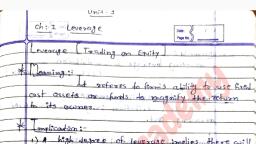 Unit-1
Ch: 1 Leverage
Date
Page No.
Leverage [Trading on Equity]
* Meaning:-
It referes to firm's ability to use fixed
cost assets or funds to magnify the return
to its owner.
* Implication:-
1) A high degree of leverage implies there will